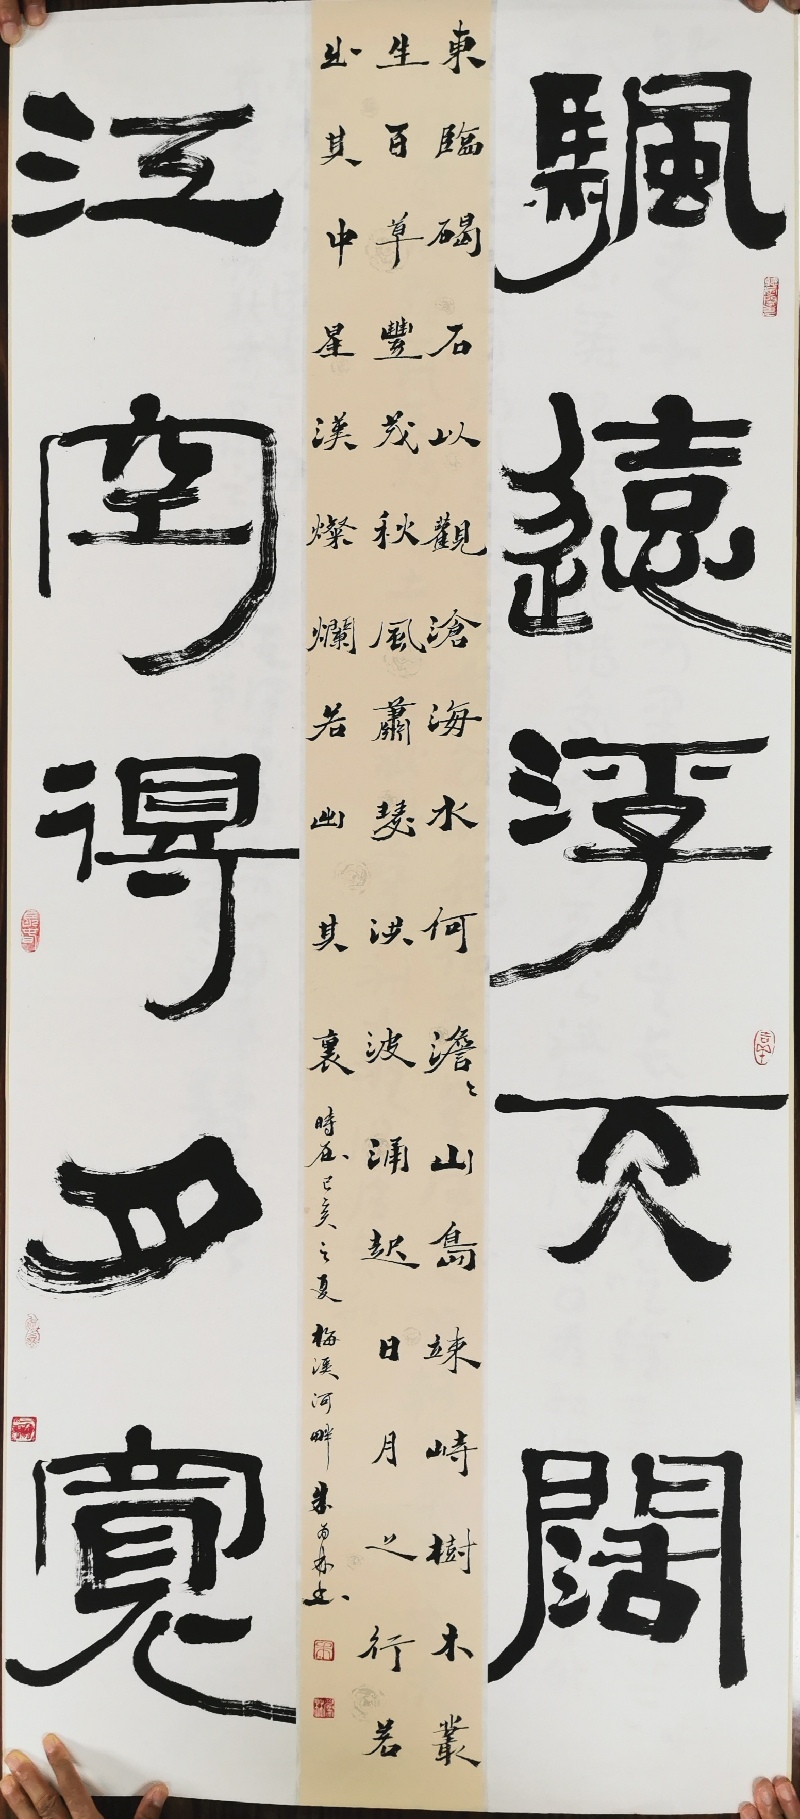 颿遠浮天闊
東臨碣石以觀滄海水何澹〻山島竦峙樹木叢
生百草豐茂秋風蕭瑟洪波涌起日月之行若
出其中星漢燦爛若出其裏時在己亥之夏梅溪河畔朱为林书
江空得月寬